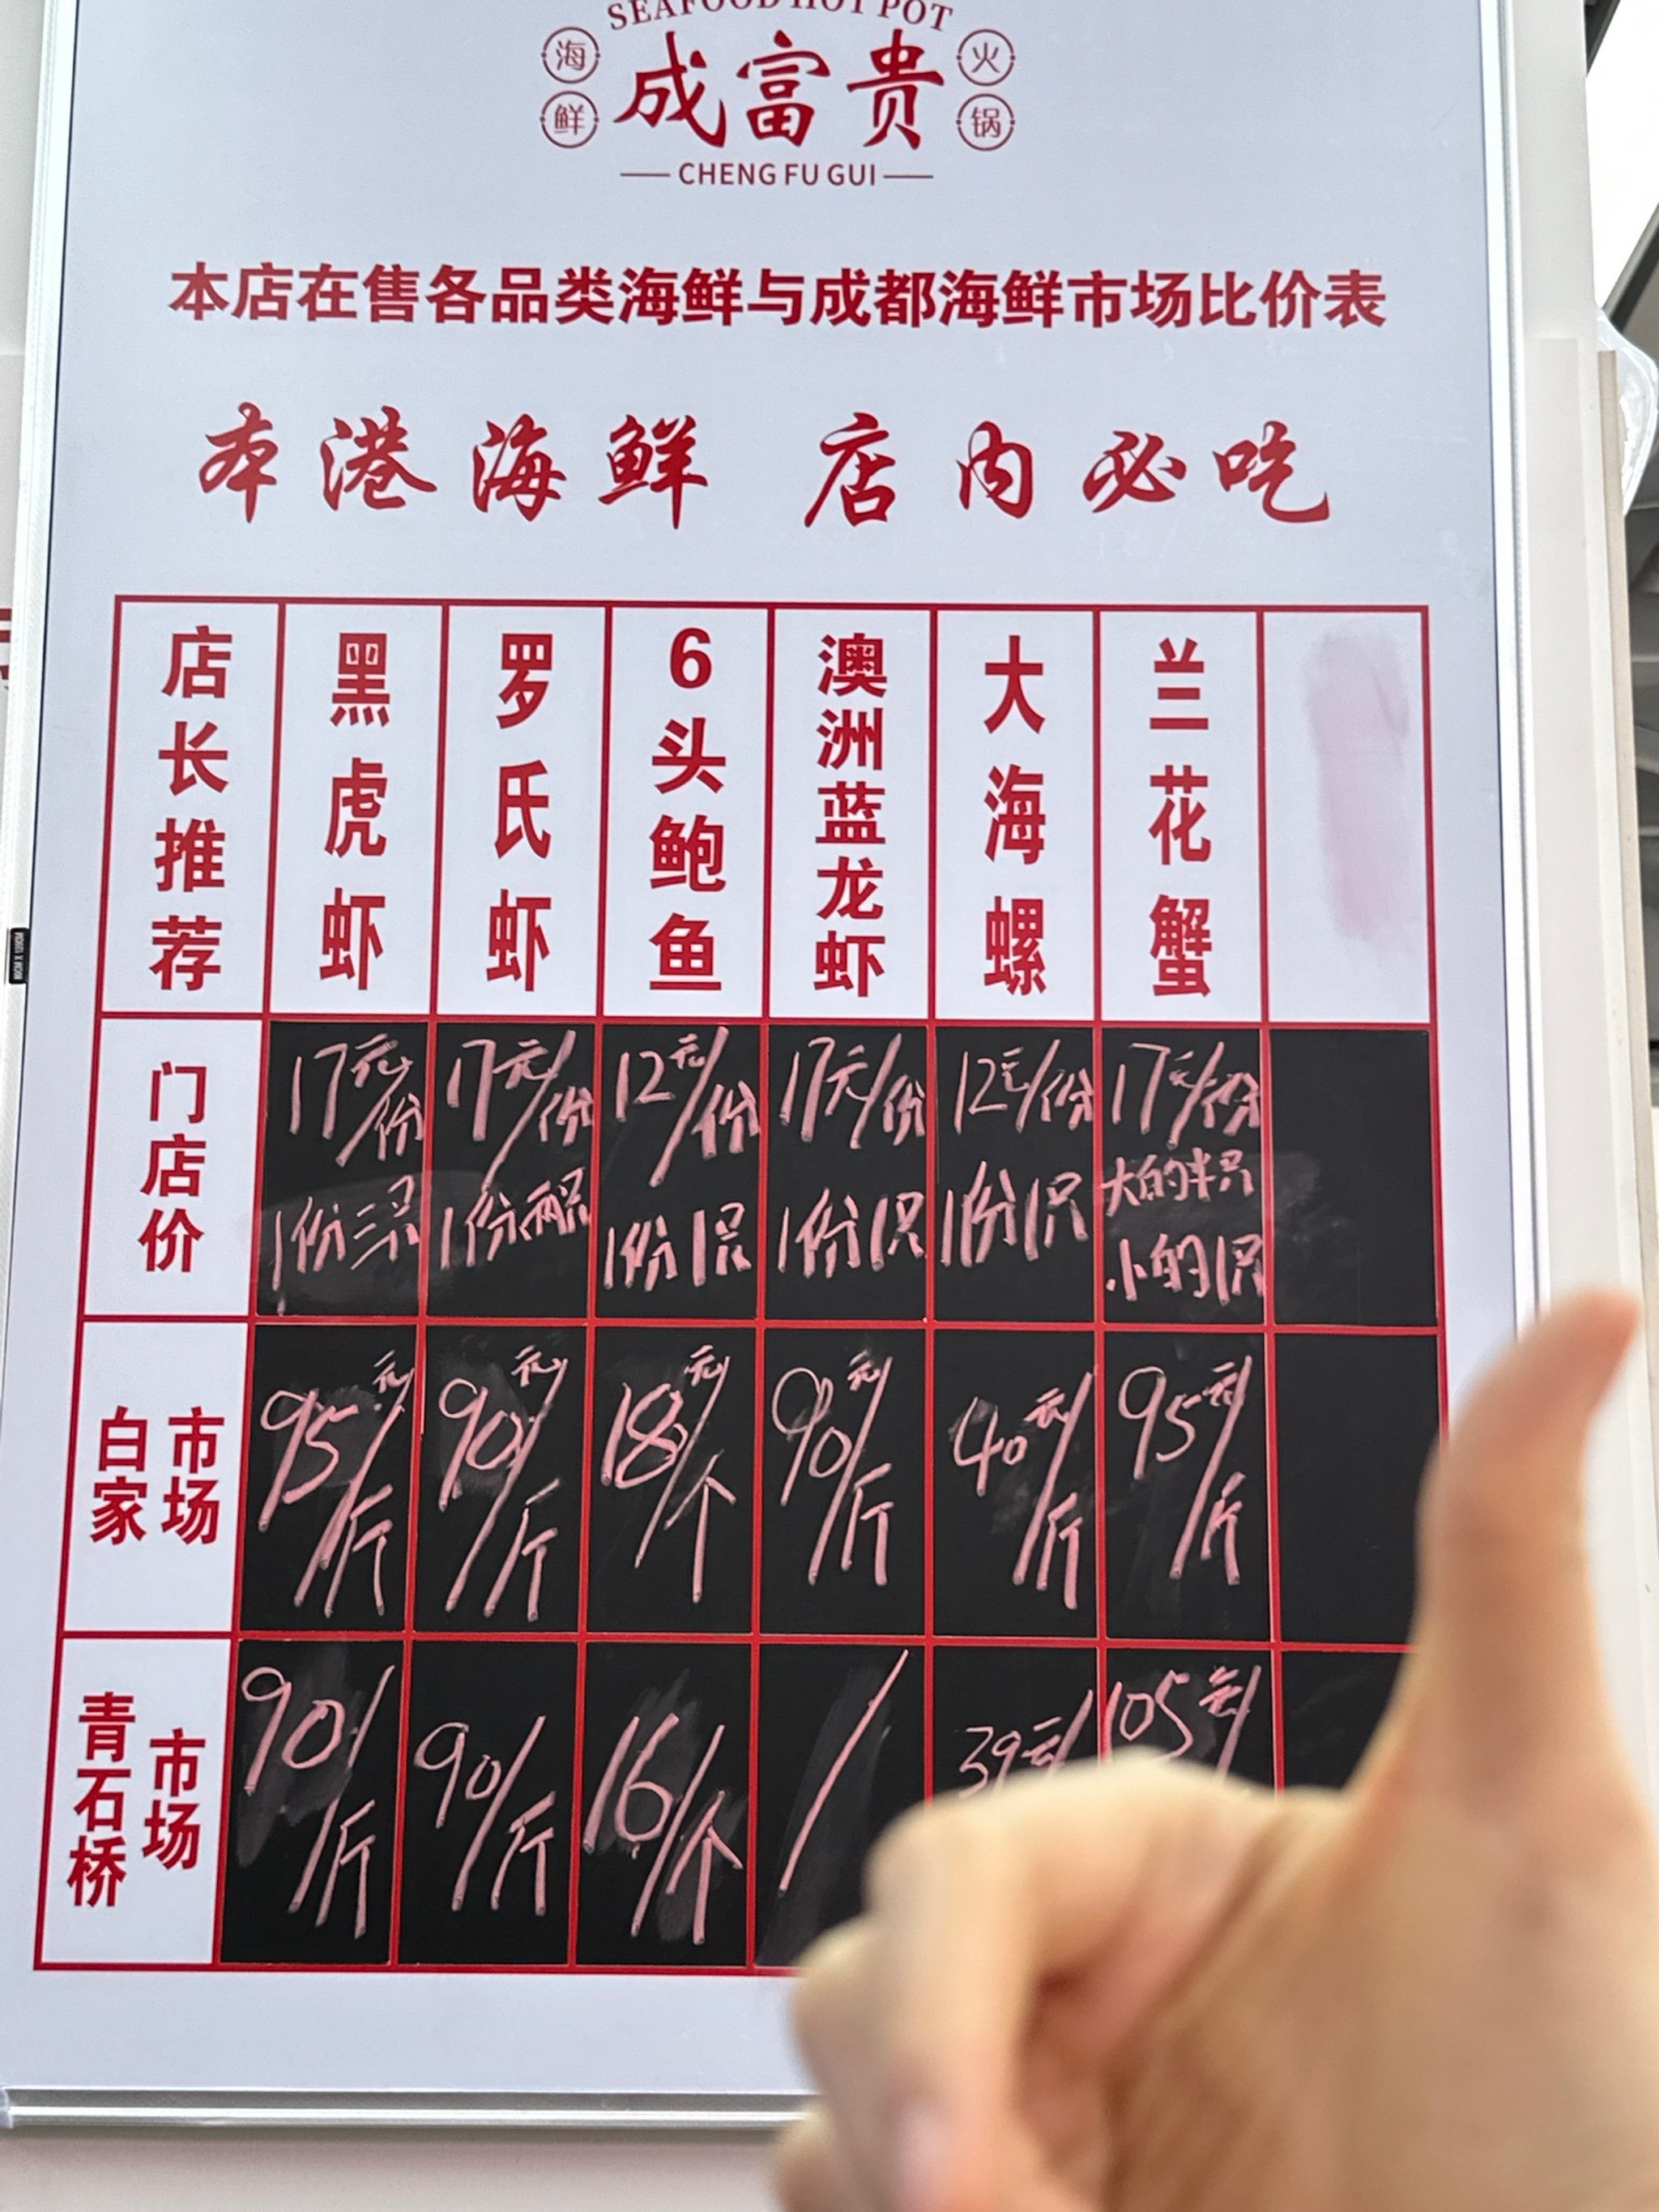 SEAFOOD HOT POT
海鲜
成富贵
火锅
CHENG FU GUI
本店在售各品类海鲜与成都海鲜市场比价表
本港海鲜 店内必吃
店长推荐 黑虎虾 罗氏虾 6头鲍鱼 澳洲蓝龙虾 大海螺 兰花蟹
门店价 17元/份 17元/份 12元/份 17元/份 12元/份 17元/份
1份三只 1份两只 1份1只 1份1只 1份1只 大的半只
小的1只
白家市场 95元/斤 90元/斤 18元/个 90元/斤 40元/斤 95元/斤
青石桥市场 90/斤 90/斤 16/个 / 39元/ 105元/